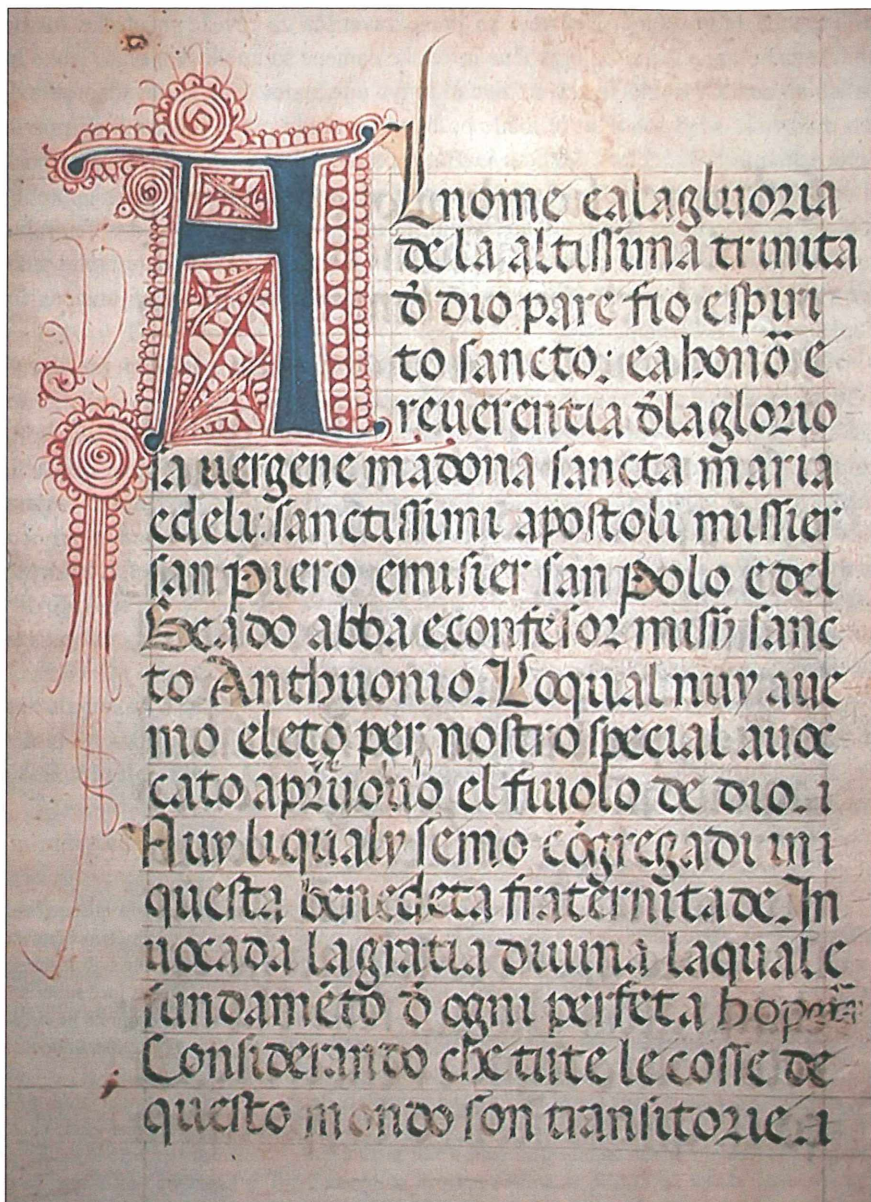 AL nome ea la gluoria
de la altissima trinita
đ dio pare fio e spiri
to sancto: ea honõ e
reuerentia đla glorio
sa uergene madona sancta maria
e deli: sanctissimi apostoli missier
san Piero e misier san Polo e del
Beado abba e confesor misij sanc
to Anthuonio. Loqual nuy aue
mo eleto per nostro special auoc
cato apruouo el fiuolo de dio. i
Nuy li qualy semo cõgregadi in i
questa benedeta fraternitade. In
uocada la gratia diuina laqual e
fundamẽto đ ogni perfeta hopera
Considerando che tute le cosse de
questo mondo son transitorie. a